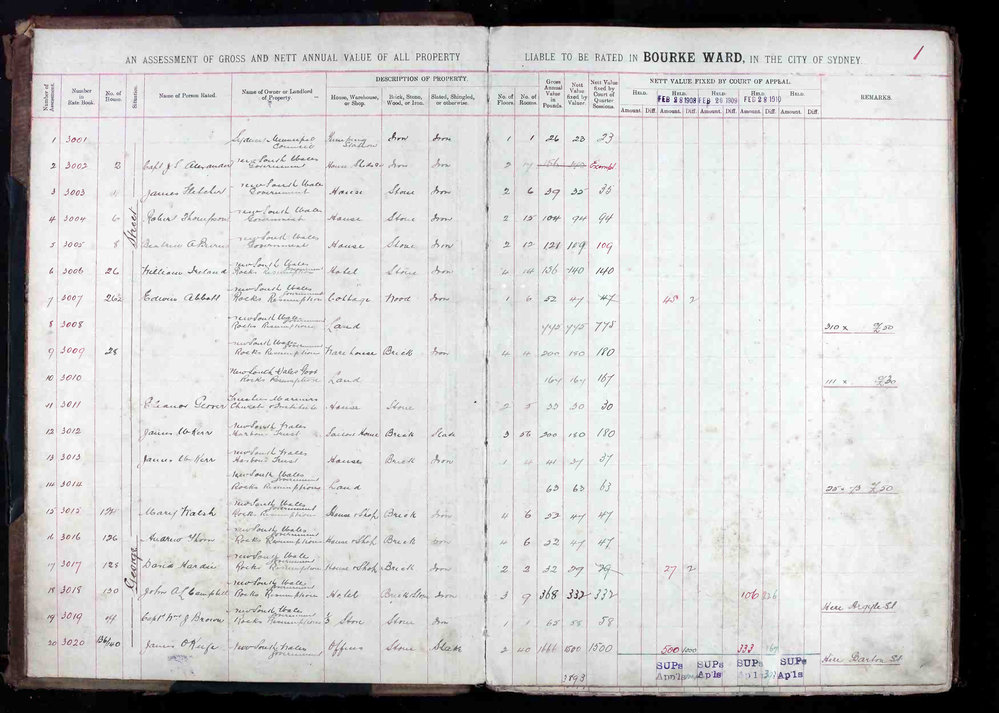 AN ASSESSMENT OF GROSS AND NETT ANNUAL VALUE OF ALL PROPERTY LIABLE TO BE RATED IN BOURKE WARD, IN THE CITY OF SYDNEY.
1
Number of Assessment. Number in Rate Book. No. of House. Situation. Name of Person Rated. Name of Owner or Landlord of Property. DESCRIPTION OF PROPERTY. House, Warehouse, or Shop. Brick, Stone, Wood, or Iron. Slated, Shingled, or otherwise. No. of Floors. No. of Rooms. Gross Annual Value in Pounds. Nett Value fixed by Valuer. Nett Value fixed by Court of Quarter Sessions. NETT VALUE FIXED BY COURT OF APPEAL. REMARKS.
HELD. HELD. HELD. HELD. HELD.
FEB 28 1908 FEB 26 1909 FEB 28 1910
Amount. Diff. Amount. Diff. Amount. Diff. Amount. Diff. Amount. Diff.
Street
George
1 3001 Sydney Municipal Council Pumping Station Iron Iron 1 1 26 23 23
2 3002 2 Capt J S Alexander New South Wales Government House Iron Iron 2 Exempt
3 3003 James Fletcher New South Wales Government House Stone Iron 2 6 39 35 35
4 3004 6 Robert Thompson New South Wales Government House Stone Iron 2 15 104 94 94
5 3005 8 New South Wales Government House Stone Iron 2 12 121 109 109
6 3006 26 William Ireland New South Wales Government Rocks Resumption Hotel Stone Iron 4 14 156 140 140
7 3007 26½ Edwin Abbott New South Wales Government Rocks Resumption Cottage Wood Iron 1 6 52 47 47 45 2
8 3008 New South Wales Government Rocks Resumption Land 775 775 775 310 x £2/50
9 3009 28 New South Wales Government Rocks Resumption Warehouse Brick Iron 4 4 200 180 180
10 3010 New South Wales Govt Rocks Resumption Land 167 167 167 111 x
11 3011 Eleanor Glover Mariners Church & Institute House Stone 2 5 33 30 30
12 3012 James McKerr New South Wales Harbour Trust Sailors Home Brick Slate 3 56 200 180 180
13 3013 James McKerr New South Wales Harbour Trust House Brick Iron 1 4 41 37 37
14 3014 New South Wales Government Rocks Resumption Land 63 63 63
15 3015 124 Mary Walsh New South Wales Government Rocks Resumption House & Shop Brick Iron 4 6 52 47 47
16 3016 126 Andrew Thorn New South Wales Government Rocks Resumption House & Shop Brick Iron 4 6 52 47 47
17 3017 128 David Hardie New South Wales Government Rocks Resumption House & Shop Brick Iron 2 2 32 29 29 27 2
18 3018 130 John A Campbell New South Wales Government Rocks Resumption Hotel Brick Stone Iron 3 9 368 332 332 106 226
Here Argyle St
19 3019 Capt Wm J Brown New South Wales Government Rocks Resumption Store Stone Iron 1 1 65 58 58
20 3020 James O'Keefe New South Wales Government Offices Stone Slate 2 40 1666 1500 1500 500 1000 333 167
Here Barton St
SUPs SUPs SUPs SUPs
Apls Apls Apls Apls
3893